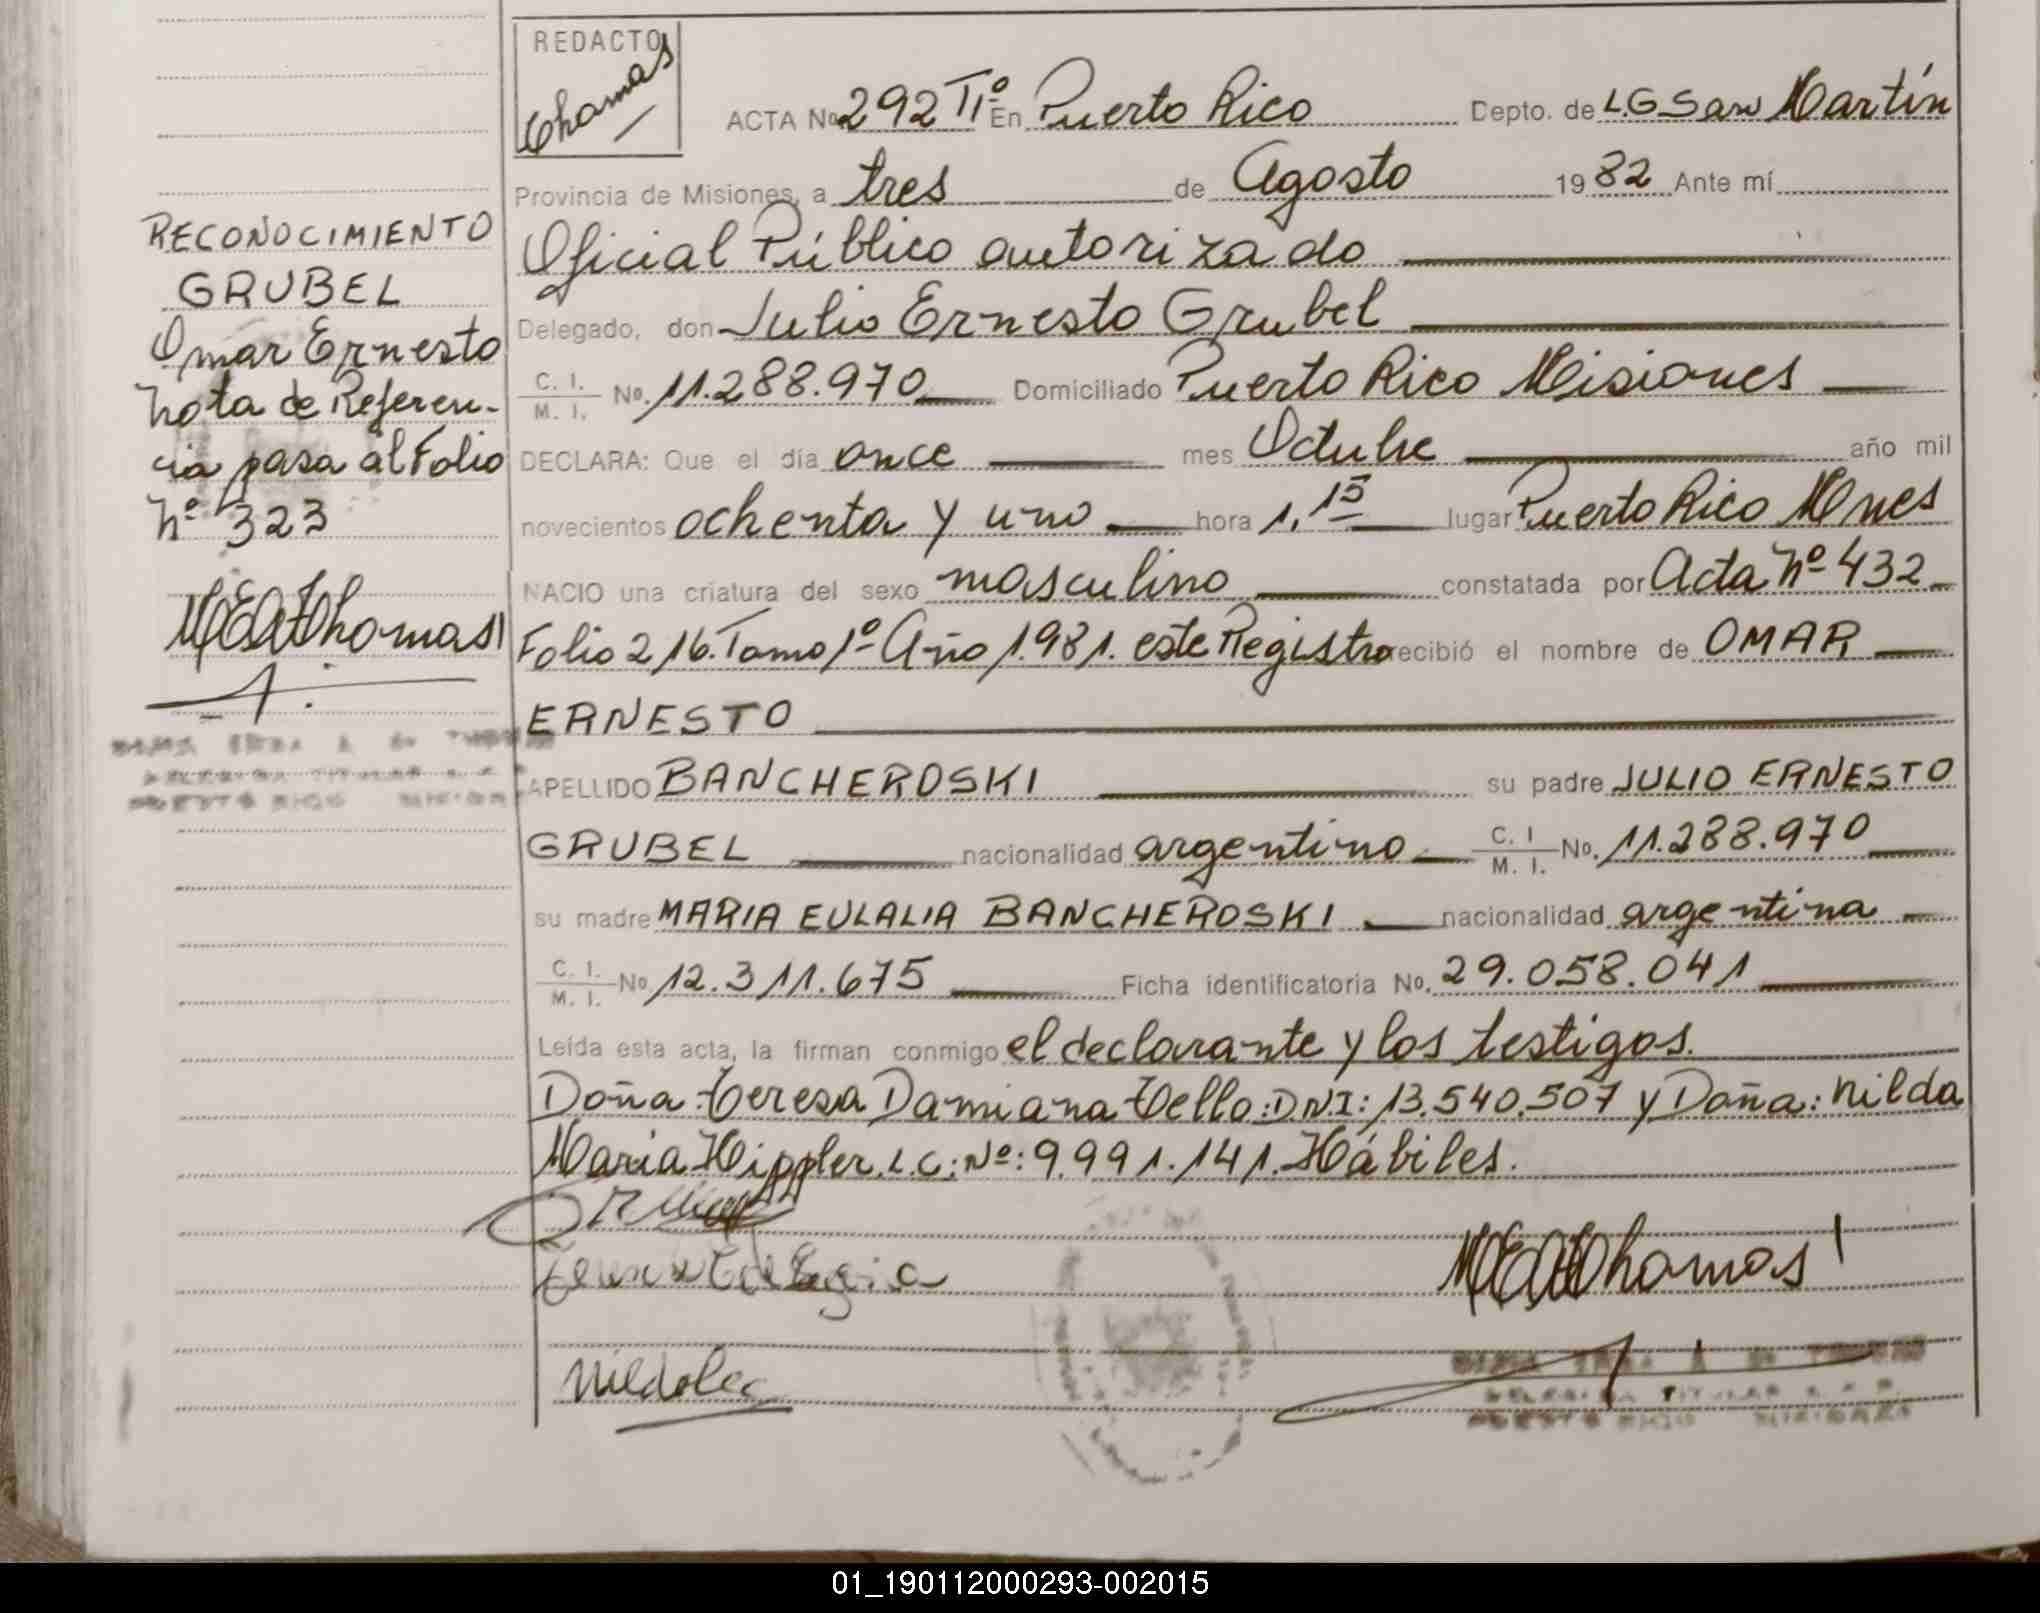 REDACTO
Thomas
ACTA No 292 Tº IIº En Puerto Rico Depto. de L.G. San Martín
Provincia de Misiones, a tres de Agosto 1982 Ante mí
Oficial Público autorizado
Delegado, don Julio Ernesto Grubel
C. I. / M. I. No. 11.288.970 Domiciliado Puerto Rico Misiones
DECLARA: Que el día once mes Octubre año mil
novecientos ochenta y uno hora 1,15 lugar Puerto Rico Mnes
NACIO una criatura del sexo masculino constatada por Acta Nº 432
Folio 216. Tomo 1º Año 1.981. este Registro recibió el nombre de OMAR
ERNESTO
APELLIDO BANCHEROSKI su padre JULIO ERNESTO
GRUBEL nacionalidad argentino C. I / M. I. No. 11.288.970
su madre MARIA EULALIA BANCHEROSKI nacionalidad argentina
C. I. / M. I. No 12.311.675 Ficha identificatoria No. 29.058.041
Leída esta acta, la firman conmigo el declarante y los testigos.
Doña: Teresa Damiana Tello: D.N.I: 13.540.507 y Doña: Nilda
Maria Hippler. L.C: Nº: 9.991.141. Hábiles.
MEATThomas
RECONOCIMIENTO
GRUBEL
Omar Ernesto
Nota de Referen-
cia pasa al Folio
Nº 323
MEATThomas
PUERTO RICO
DELEGADA TITULAR
PUERTO RICO MISIONES
01_190112000293-002015